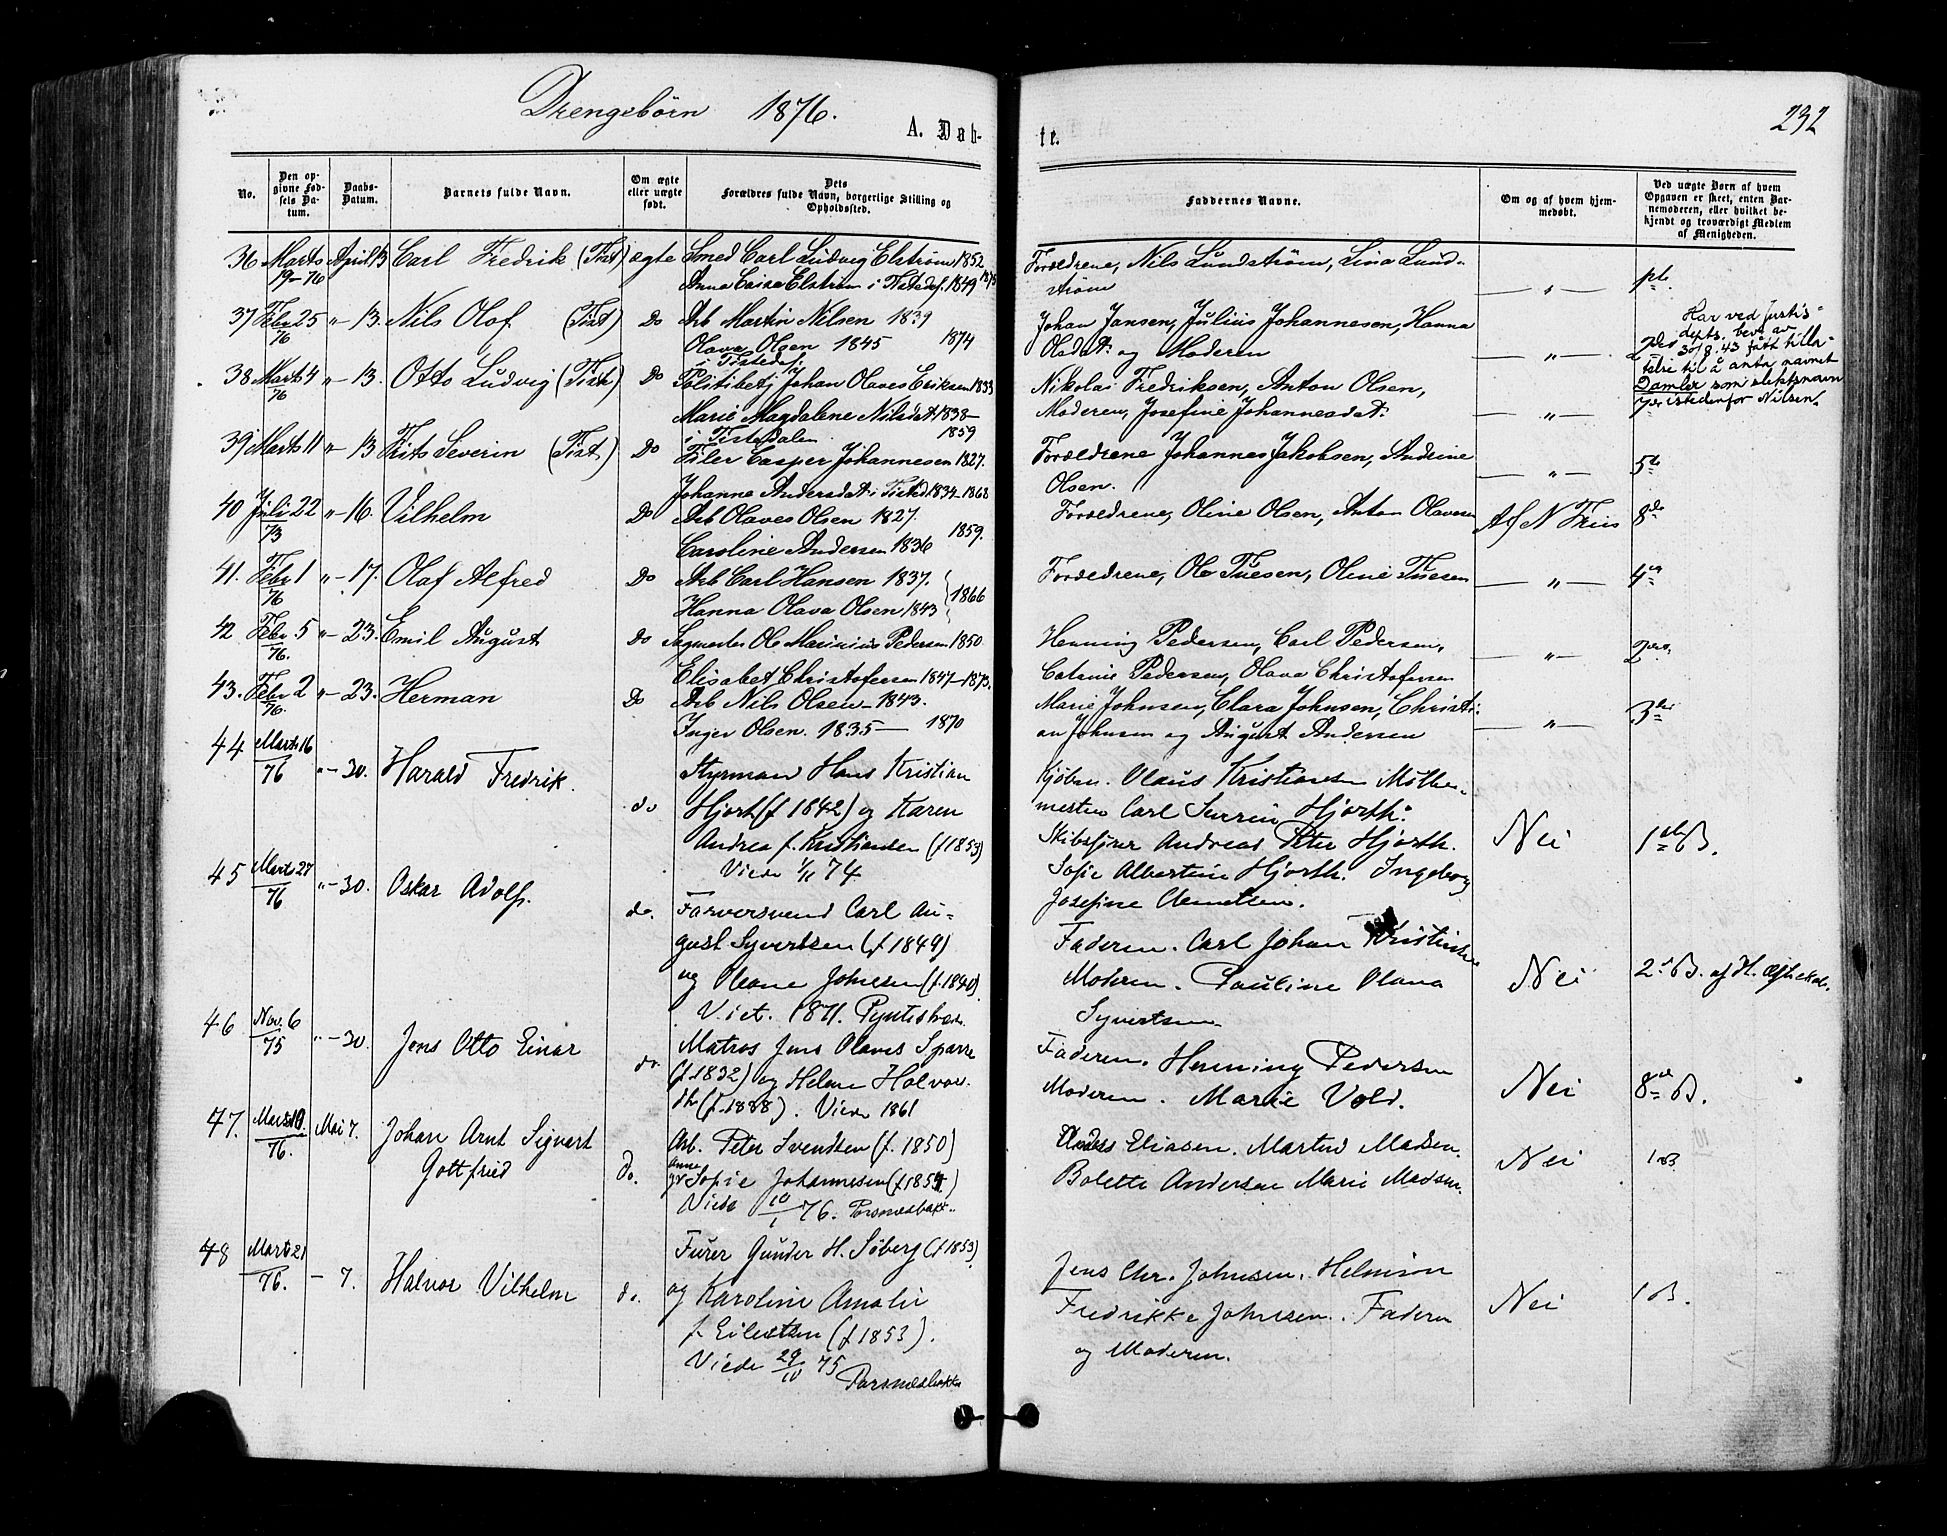 Drengebörn 1876.
A. Døb-
te.
232
No.
Den op-
givne Fød-
sels Da-
tum.
Daabs-
Datum.
Barnets fulde Navn.
Om ægte
eller uægte
født.
Dets
Forældres fulde Navn, borgerlige Stilling og
Opholdssted.
Faddernes Navne.
Om og af hvem hjem-
medøbt.
Ved uægte Børn af hvem
Opgaven er skeet, enten Bar-
nemoderen, eller hvilket be-
kjendt og troværdigt Medlem
af Menigheden.
36 Marts 19-76 April 13 Carl Fredrik (Tist) ægte Smed Carl Ludvig Elström 1852
Anna Caisa Elström i Tistedf. 1849 1875
Forældrene, Nils Lundström, Lina Lund-
ström — „ —
37 Febr 25 76 „ - 13. Nils Olof (Tist) Do Arb Martin Nilsen 1839
Olava Olsen 1845 1874
i Tistedal
Johan Jansen, Julius Johannesen, Hanna
Olsdat. og Moderen — „ — 2de
Har ved Justis-
depts. bev. av
30/8.43 fått tilla-
telse til å anta navnet
Damler som slektsnavn
istedenfor Nilsen.
38 Mart 4 76 „ - 13. Otto Ludvig (Tist) Do Politibetj Johan Olaves Eriksen 1833
Marie Magdalene Nilsdat 1838 -
i Tistedalen 1859
Nikolai Fredriksen, Anton Olsen,
Moderen, Josefine Johannesdat. — „ — 7de
39 Marts 11 „ - 13 Frits Severin (Tist) Do Filer Casper Johannesen 1827.
Johanne Andersdat i Tisted 1834-1868
Forældrene Johannes Jakobsen, Andrine
Olsen. — „ — 5te
40 Juli 22 73 „ - 16. Vilhelm Do Arb Olaves Olsen 1827.
Caroline Andersen 1836 1859.
Forældrene, Oline Olsen, Anton Olavesen Af N Friis 8de
41. Febr 1 76 „ - 17. Olaf Alfred Do Arb Carl Hansen 1837.
Hanna Olava Olsen 1843 1866
Forældrene, Ole Tuesen, Oline Tuesen — „ — 4de
42 Febr. 5 76. „ - 23. Emil August do Sagmester Ole Marinius Pedersen 1850
Elisabet Christofersen 1847-1873.
Henning Pedersen, Carl Pedersen,
Catrine Pedersen, Olava Christofersen — „ —
43. Febr 2 76. „ - 23. Herman Do Arb Nils Olsen 1843.
Inger Olsen. 1835 - 1870
Marie Johnsen, Clara Johnsen, Christi-
an Johnsen og August Andersen — „ —
44 Mart. 16 76 „ - 30. Harald Fredrik. do Styrman Hans Kristian
Hjort (f 1842) og Karen
Andrea f. Kristiansen (f 1853)
Viede 1/11 74
Kjøbm. Olaus Kristiansen
Carl Hjorth.
Skibsfører Andreas Peter Hjorth.
Sofie Albertine Hjorth. Ingeborg
Josefine Nei 1ste B.
45 Mart 27 76 „ - 30. Oskar Adolf. do. Farversvend Carl Au-
gust Syvertsen (f 1849)
og Oleane Johnsen (f. 1840)
Viet. 1871.
Faderen. Carl Johan Kristiansen
Moderen. Pauline Olava
Syvertsen Nei
46 Nov. 6 75 „ - 30. Jens Otto Einar do. Matros Jens Olaves Sparre
(f. 1832) og Helene Halvors-
dtr (f. 1838). Viede 1861
Faderen. Henning Pedersen
Moderen. Marie Vold. Nei 8de B.
47. Marts 10. 76. Mai 7. Johan Arnt Sigvart
Gottfried do. Arb. Peter Svendsen (f. 1850)
og Anne Sofie Johannesen (f 1854)
Viede 10/1 76. Torsnesbakk.
Anders Eliasen. Martin Madsen.
Bolette Andersen Marie Madsen. Nei 1 B.
48 Mart. 21 76. - 7. Halvor Vilhelm do. Furer Gunder H. Söberg (f 1853)
og Karoline Amalie
f. Eilertsen (f 1853).
Viede 29/10 75
Torsnesbakke
Jens Chr. Johnsen.
Fredrikke Johnsen. Faderen
og Moderen. Nei 1 B.